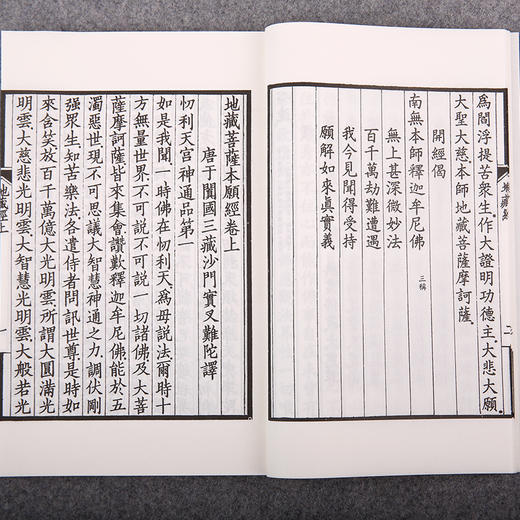 為閻浮提苦衆生.作大證明功德主.大悲大願.
大聖大慈.本師地藏菩薩摩訶薩.
開經偈
南無本師釋迦牟尼佛 三稱
無上甚深微妙法
百千萬劫難遭遇
我今見聞得受持
願解如來真實義
地藏經
二
地藏菩薩本願經卷上
唐于闐國三藏沙門實叉難陀譯
忉利天宮神通品第一
如是我聞.一時佛在忉利天.為母說法.爾時十
方無量世界.不可說不可說.一切諸佛.及大菩
薩摩訶薩.皆來集會.讚歎釋迦牟尼佛.能於五
濁惡世.現不可思議大智慧神通之力.調伏剛
强衆生.知苦樂法.各遣侍者.問訊世尊.是時如
來含笑.放百千萬億大光明雲.所謂大圓滿光
明雲.大慈悲光明雲.大智慧光明雲.大般若光
地藏經上
一